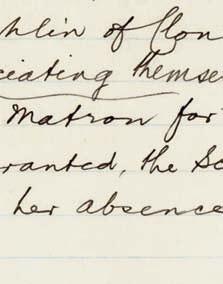 hlin of Clon
ciating themse
Matron for
ranted, the Sc
her absence